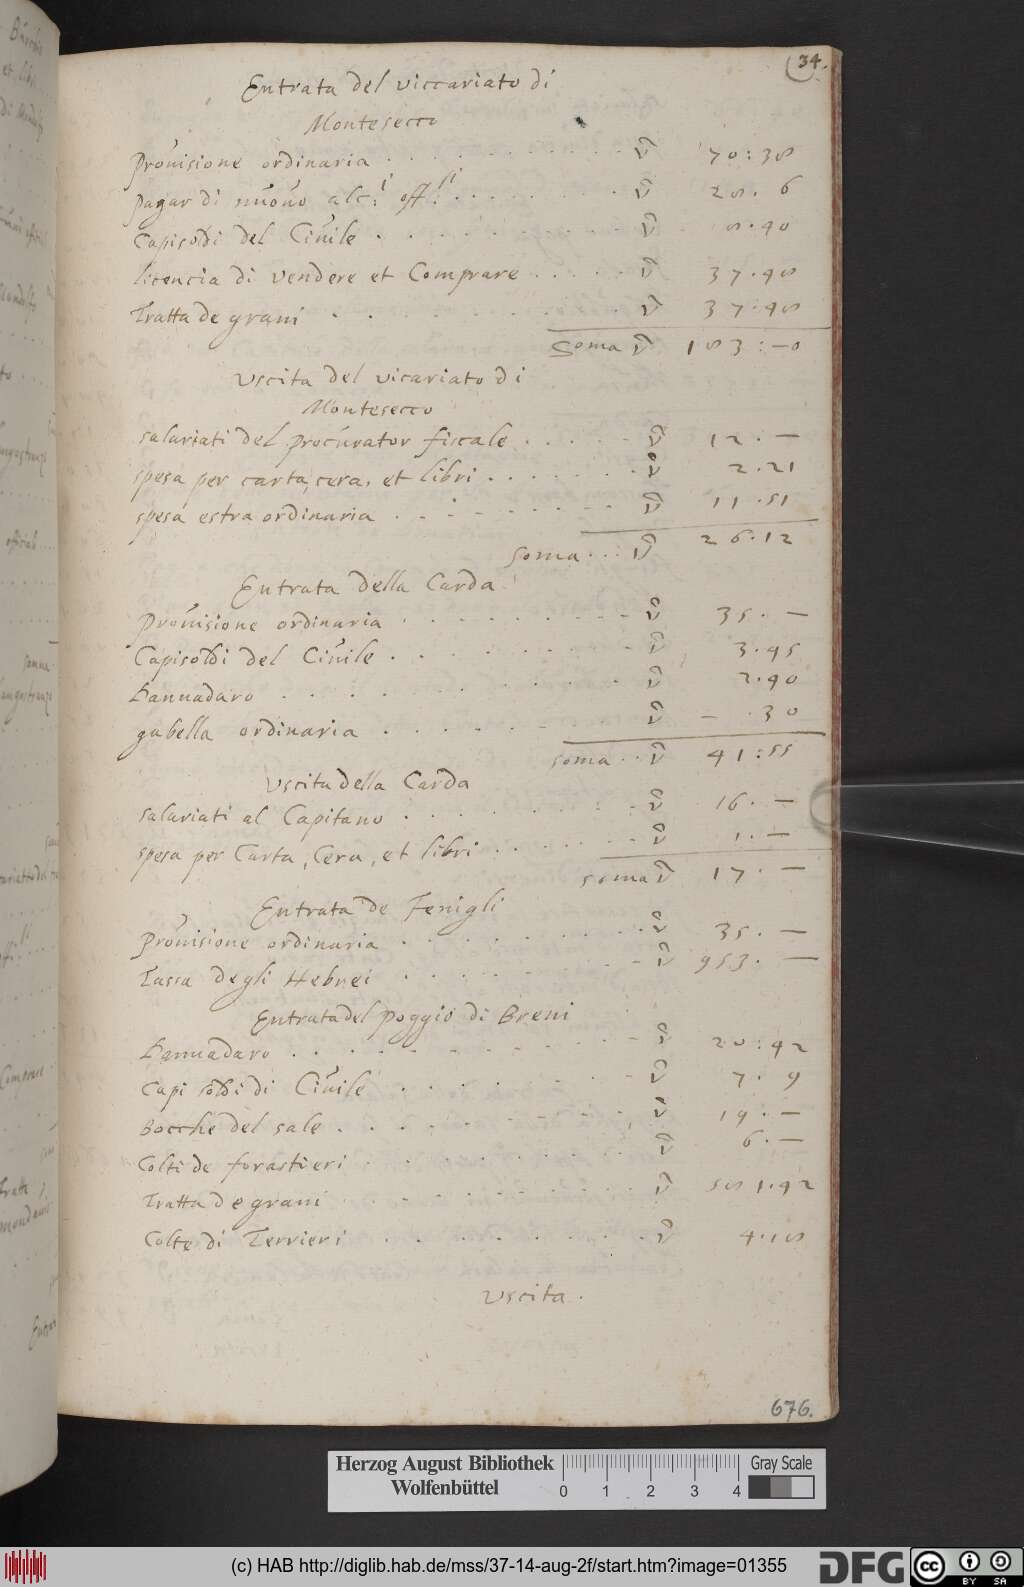 34.
Entrata del viccariato di
Montesecco
Prouisione ordinaria . . . . . . . . . . ▽ 70:38
pagar di nuouo alc:i off:li . . . . . . . ▽ 28. 6
Capisoldi del Ciuile . . . . . . . . . ▽ 8.40
licencia di vendere et Comprare . . . . . ▽ 37.48
Tratta de grani . . . . . . . . . ▽ 37:48
Soma ▽ 183:—0
Vscita del vicariato di
Montesecco
salariati del procurator fiscale . . . . . ▽ 12.—
spesa per carta, cera, et libri . . . . . . ▽ 2.21
spesa estra ordinaria . . . . . . . . ▽ 11.51
soma . . . ▽ 26.12
Entrata della Carda
Prouisione ordinaria . . . . . . . . . ▽ 35.—
Capisoldi del Ciuile . . . . . . . . . ▽ 3.45
Dannadaro . . . . . . . . . . ▽ 2.40
gabella ordinaria . . . . . . . ▽ — .30
soma . . ▽ 41:55
Vscita della Carda
salariati al Capitano . . . . . . . . ▽ 16.—
spesa per Carta, Cera, et libri . . . . . . ▽ 1.—
soma ▽ 17.—
Entrata de Fenigli
Prouisione ordinaria . . . . . . . . . ▽ 35.—
Tassa degli Hebrei . . . . . . . . ▽ 953.—
Entrata del poggio di Breni
Dannadaro . . . . . . . . . . ▽ 20:42
Capi soldi di Ciuile . . . . . . . . ▽ 7. 9
Bocche del sale . . . . . . . . . ▽ 19.—
Colti de forastieri . . . . . . . . . ▽ 6.—
Tratta de grani . . . . . . . . . ▽ 581.42
Colte di Terrieri . . . . . . . . . ▽ 4.18
Vscita.
676.
Herzog August Bibliothek
Wolfenbüttel
0 1 2 3 4
Gray Scale
(c) HAB http://diglib.hab.de/mss/37-14-aug-2f/start.htm?image=01355
DFG
cc BY SA